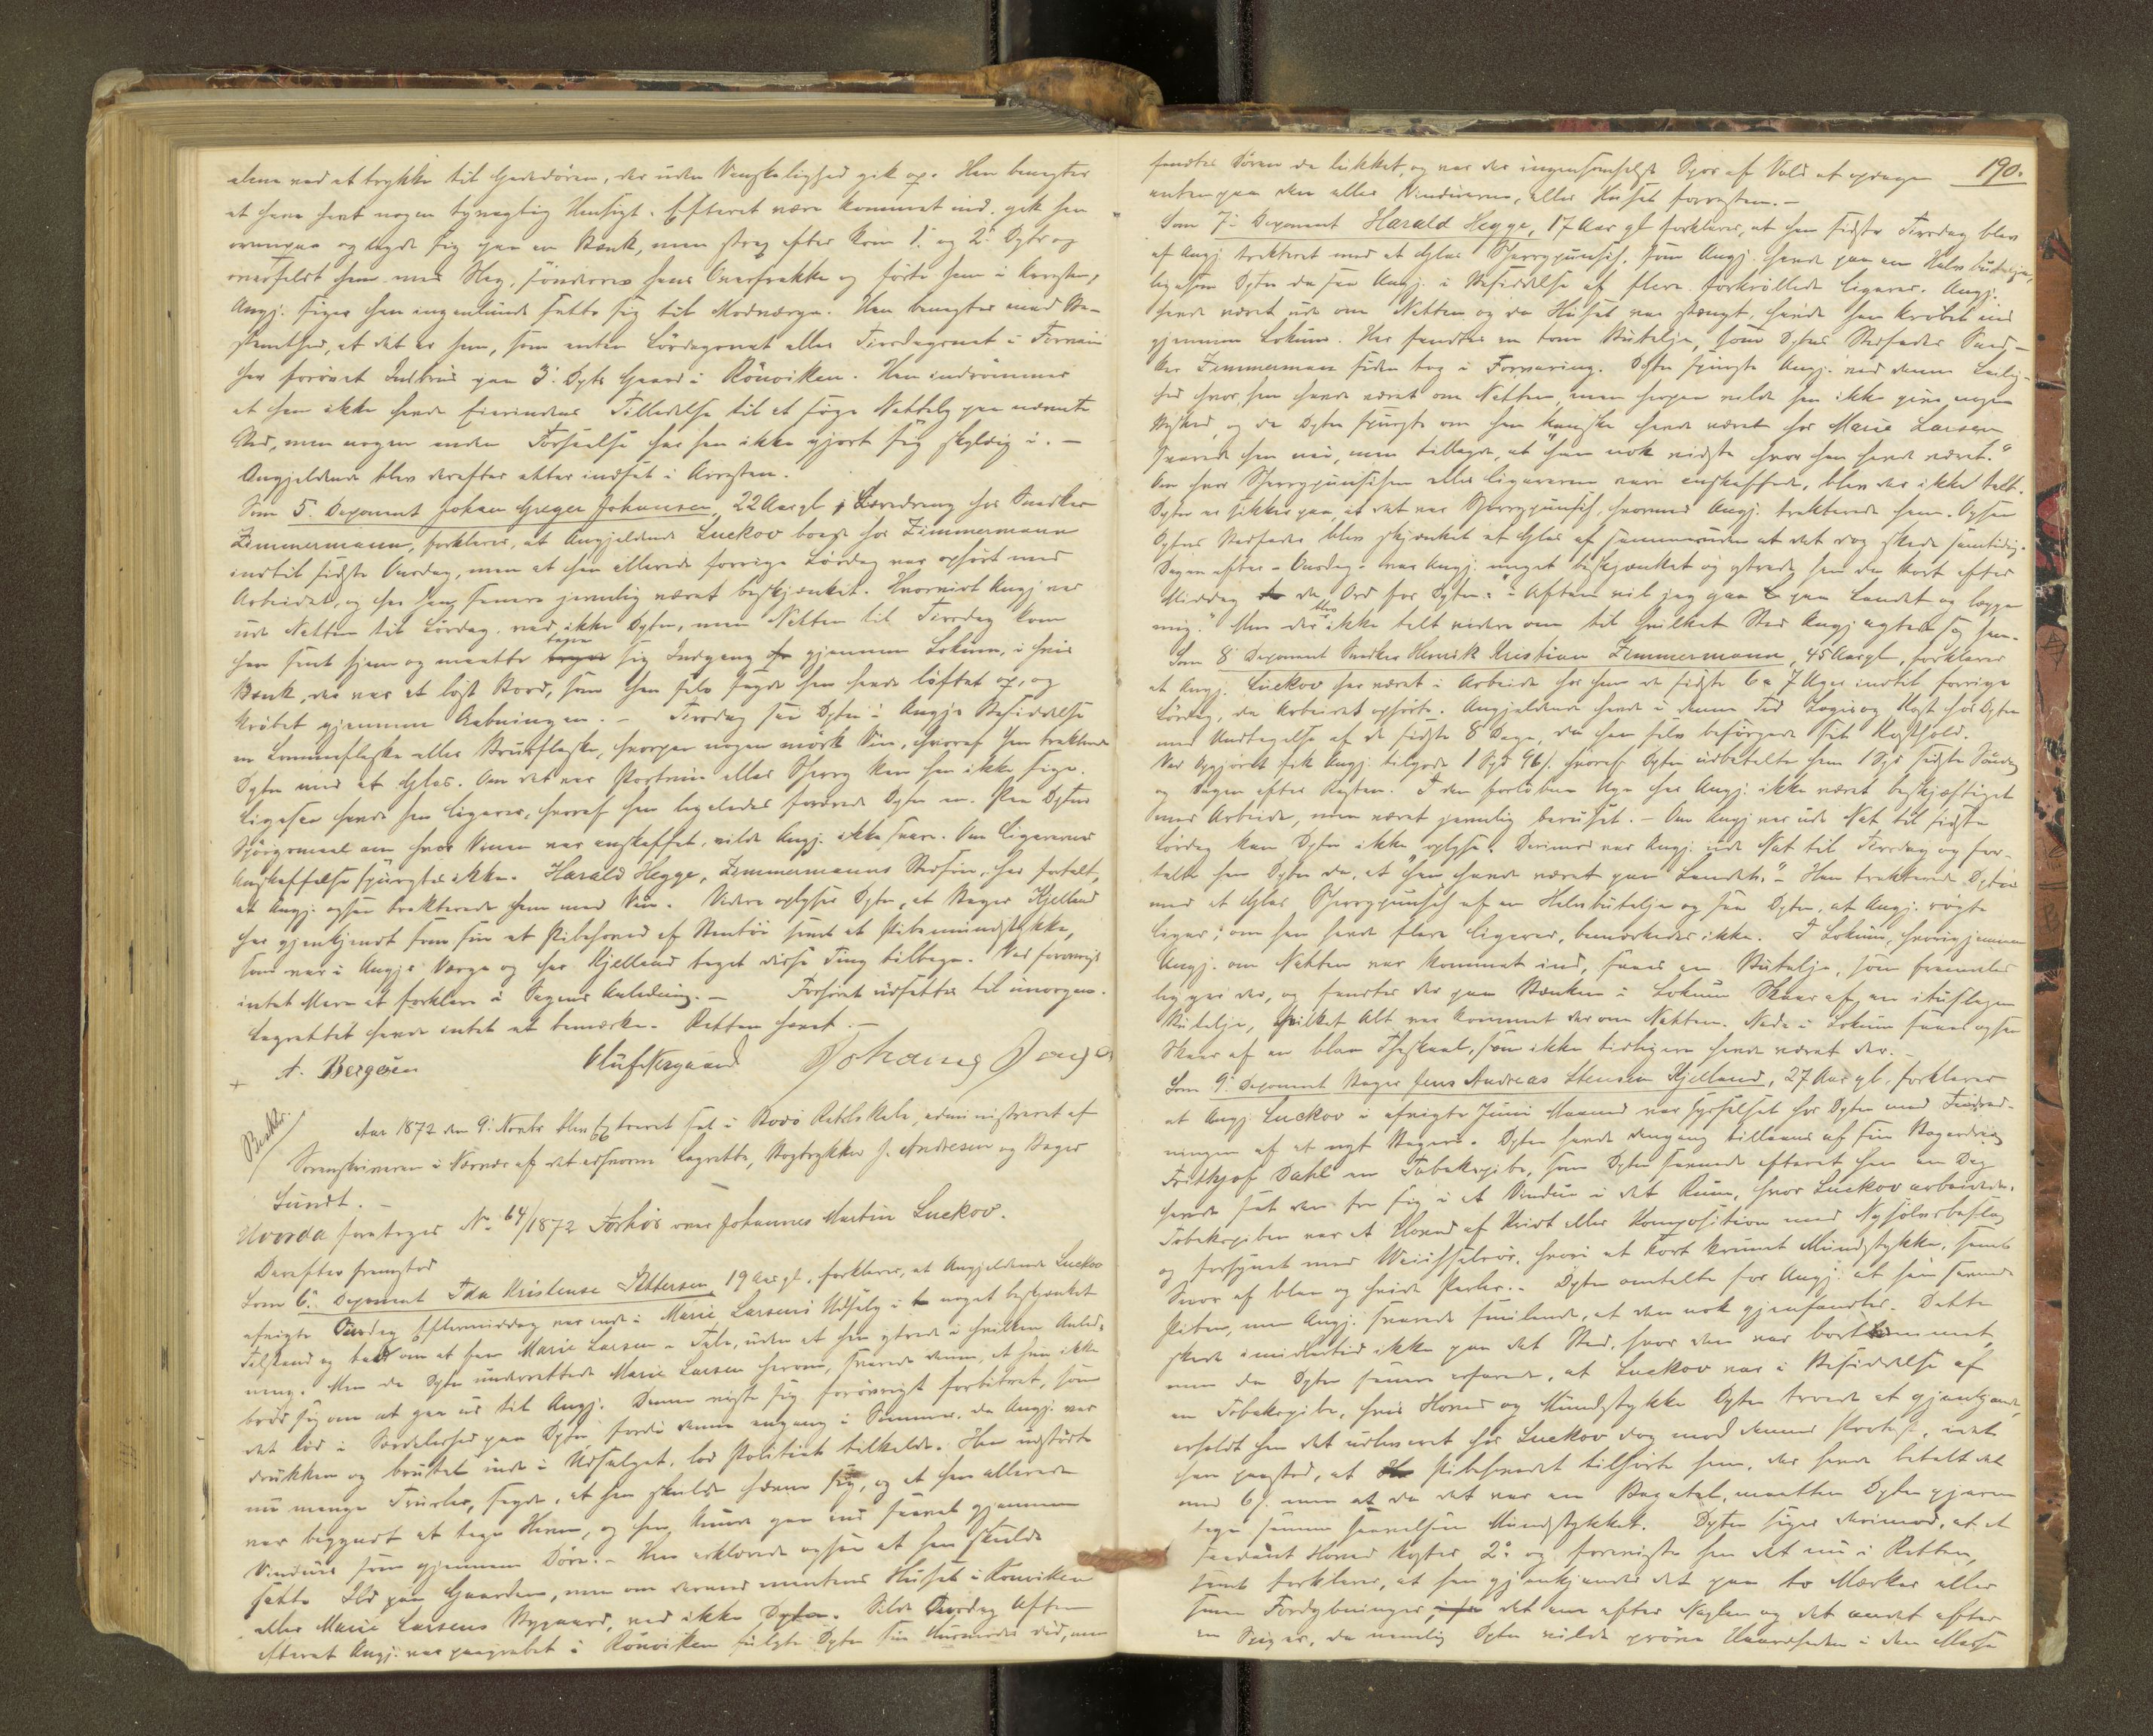 alene ved at trykke til Gadedøren, der uden Vanskelighed gik op. Han benegter
at have havt nogen tyvagtig Hensigt. Efteret være kommet ind, gik han
ovenpaa og lagde sig paa en Bænk, men strax efter kom 1. og 2. Dpts og
overfaldt ham med Slag, sønderrev hans Overfrakke og førte ham i Arresten,
Angj. siger han ingenlunde satte sig til Modværge. Han benegter med Be-
stemthed, at det er ham, som enten Lørdagsnat eller Tirsdagsnat i Forveien
har forøvet Indbrud paa 3. Dpts Gaard i Rönviken. Han indrømmer
at han ikke havde Eierindens Tilladelse til at søge Nattely paa nævnte
Sted, men nogen anden Forseelse har han ikke gjort sig skyldig i. -
Angjeldende blev derefter atter indsat i Arresten.
Som 5. Deponent Johan Greger Johansen, 22 Aar gl., Læredreng hos Snedker
Zimmermann, forklarer, at Angjeldende Luckov boede hos Zimmermann
indtil sidste Onsdag, men at han allerede forrige Lørdag var ophørt med
Arbeidet, og har han senere jevnlig været beskjænket. Hvorvidt Angj var
ude Natten til Lørdag, ved ikke Dptn, men Natten til Tirsdag kom
han sent hjem og maatte tage sig Indgang gjennem Lokum, i hvis
Bænk, der var et løst Bord, som han selv sagde han havde løftet op, og
krøbet gjennem Aabningen. - Tirsdag saa Dptn i Angjs Besiddelse
en Lommeflaske eller Brusflaske, hvorpaa nogen mørk Vin, hvoraf han trakterede
Dptn med et Glas. Om det var Portvin eller Sherry kan han ikke sige.
Ligesaa havde han Cigarer, hvoraf han ligeledes forærede Dptn en. Paa Dptns
Spørgsmaal om hvor Vinen var anskaffet, vilde Angj. ikke svare. Om Cigarernes
Anskaffelse spurgtes ikke. Harald Hegge, Zimmermanns Stedsøn, har fortalt,
at Angj. ogsaa trakterede ham med Vin. Videre oplyser Dptn, at Bager Kjelland
har gjenkjendt som sin et Pibehoved af Stentøi samt et Pibemundstykke,
som var i Angjs Værge og har Kjelland taget disse Ting tilbage. Ved forøvrigt
intet Mere at forklare i Sagens Anledning. - Forhøret udsattes til imorgen.
Lagrettet havde intet at bemærke. Retten hævet. -
+ A. Bergesen Oluf Kregnæs Johannes
Beskr.
Aar 1872 den 9. Novbr blev Extraret sat i Bodö Retslokale, administreret af
Sorenskriveren i Nærvær af det edsvorne Lagrette, Bogtrykker J. Andresen og Bager
Sundt. -
Hvorda foretoges No 64/1872 Forhør over Johannes Martin Luckov.
Derefter fremstod
Som 6. Deponent Ida Kristense Pettersen, 19 Aar gl., forklarer, at Angjeldende Luckov
afvigte Onsdag Eftermiddag var inde i Marie Larsens Udsalg i noget beskjænket
Tilstand og bad om at faa Marie Larsen i Tale, uden at han ytrede i hvilken Anled-
ning. Men da Dptn underrettede Marie Larsen herom, svarede denne, at hun ikke
brød sig om at gaa ud til Angj. Denne viste sig forøvrigt forbitret, som
det lod i Særdeleshed paa Dptn fordi denne engang i Sommer, da Angj. var
drukken og brutal inde i Udsalget, lod Politiet tilkalde. Han udstødte
nu mange Trusler, sagde, at han skulde hævne sig, og at han allerede
var begyndt at tage Hevn, og han kunde gaa ind saavel gjennem
Vinduer som gjennem Døre. - Han erklærede ogsaa at han skulde
sætte Ild paa Gaarden, men om dermed mentes Huset i Rönviken
eller Marie Larsens Bygaard, ved ikke Dptn. Silde Onsdag Aften
efterat Angj. var paagrebet i Rönviken fulgte Dptn sin Husmoder did, men
190.
fandtes Døren da lukket, og var der ingensomhelst Spor af Vold at opdage
enten paa den eller Vinduerne, eller Huset forresten. -
Som 7. Deponent Harald Hegge, 17 Aar gl. forklarer, at han sidste Tirsdag blev
af Angj. trakteret med et Glas Sherrypunsch, som Angj. havde paa en Halvbutelje,
ligesom Dptn da saa Angj. i Besiddelse af flere forkrøllede Cigarer. Angj.
havde været ude om Natten, og da Huset var stængt, havde han krøbet ind
gjennem Lokum. Her fandtes en tom Butelje, som Dptns Stedfader Sned-
ker Zimmermann siden tog i Forvaring. Dptn spurgte Angj. ved denne Leilig-
hed hvor han havde været om Natten, men herpaa vilde han ikke give nogen
Besked, og da Dptn spurgte om han kanske havde været hos Marie Larsen
svarede han nei, men tillagde, at "han nok vidste hvor han havde været."
Om hvor Sherrypunschen eller Cigarerne vare anskaffede, blev der ikke talt.
Dptn er sikker paa, at det var Sherrypunsch, hvormed Angj. trakterede ham. Ogsaa
Dptns Stedfader blev skjænket et Glas af samme uden at det dog skede samtidig.
Dagen efter - Onsdag - var Angj. meget beskjænket og ytrede han da kort efter
Middag de Ord for Dptn: "Iaften vil jeg gaa paa Landet og lægge
mig." Men der blev ikke talt videre om til hvilket Sted Angj agtede sig hen.
Som 8 Deponent Snedker Henrik Kristian Zimmermann, 45 Aar gl., forklarer
at Angj. Luckov har været i Arbeide hos ham de sidste 6 a 7 Uger indtil forrige
Lørdag, da Arbeidet ophørte. Angjeldende havde i denne Tid Logis og Kost hos Dptn
med Undtagelse af de sidste 8 Dage, da han selv besørgede sit Kosthold.
Ved Opgjøret fik Angj. tilgode 1 Spd 96 s. hvoraf Dptn udbetalte ham 1 Spd sidste Søndag
og Dagen efter Resten. I den forløbne Uge har Angj. ikke været beskjæftiget
med Arbeide, men været jevnlig beruset. - Om Angj var ude Nat til sidste
Lørdag kan Dptn ikke oplyse. Derimod var Angj. ude Nat til Tirsdag og for-
talte han Dptn da, at "han havde været paa Landet." Han trakterede Dptn
med et Glas Sherrypunsch af en Halvbutelje og saa Dptn, at Angj. røgte
Cigar; om han havde flere Cigarer, bemærkedes ikke. I Lokum, hvorigjennem
Angj. om Natten var kommet ind, fandtes en Butelje, som fremdeles
ligger der, og fandtes der paa Bænken i Lokum Skaar af en itusslagen
Butelje, hvilket Alt var kommet der om Natten. Nede i Lokum fandtes ogsaa
Skaar af en blaa Theskaal, som ikke tidligere havde været der. -
Som 9. Deponent Bager Jens Andreas Stensen Kjelland, 27 Aar gl. forklarer
at Angj. Luckov i afvigte Juni Maaned var sysselsat hos Dptn med Indred-
ningen af et nyt Bageri. Dptn havde dengang tillaans af sin Bagerdreng
Fridthjof Dahl en Tobakspibe, som Dptn savnede efterat han en Dag
havde sat den fra sig i et Vindue i det Rum, hvor Luckov arbeidede.
Tobakspiben var et Hoved af Kridt eller Komposition med Nysølvsbeslag
og forsynet med Weichselrør, hvori et kort krumt Mundstykke, samt
Snor af blaa og hvide Perler. - Dptn omtalte for Angj. at han savnede
Piben, men Angj. svarede smilende, at den nok gjenfandtes. Dette
skede imidlertid ikke paa det Sted, hvor den var bortkommet,
men da Dptn senere erfarede, at Luckov var i Besiddelse af
en Tobakspibe, hvis Hoved og Mundstykke Dptn troede at gjenkjende,
erholdt han det udleveret hos Luckov dog mod dennes Protest, idet
han paastod, at Pibehovedet tilhørte ham, der havde betalt det
med 6 s. men at da det var en Bagatel, maatte Dptn gjerne
tage samme saavelsom Mundstykket. Dptn siger derimod, at et
saadant Hoved koster 2 og foreviste han det nu i Retten,
samt forklarer, at han gjenkjender det paa to Mærker eller
smaa Fordybninger, det ene efter Neglen og det andet efter
en Spiger, da nemlig Dptn vilde prøve Haardheden i den Masse